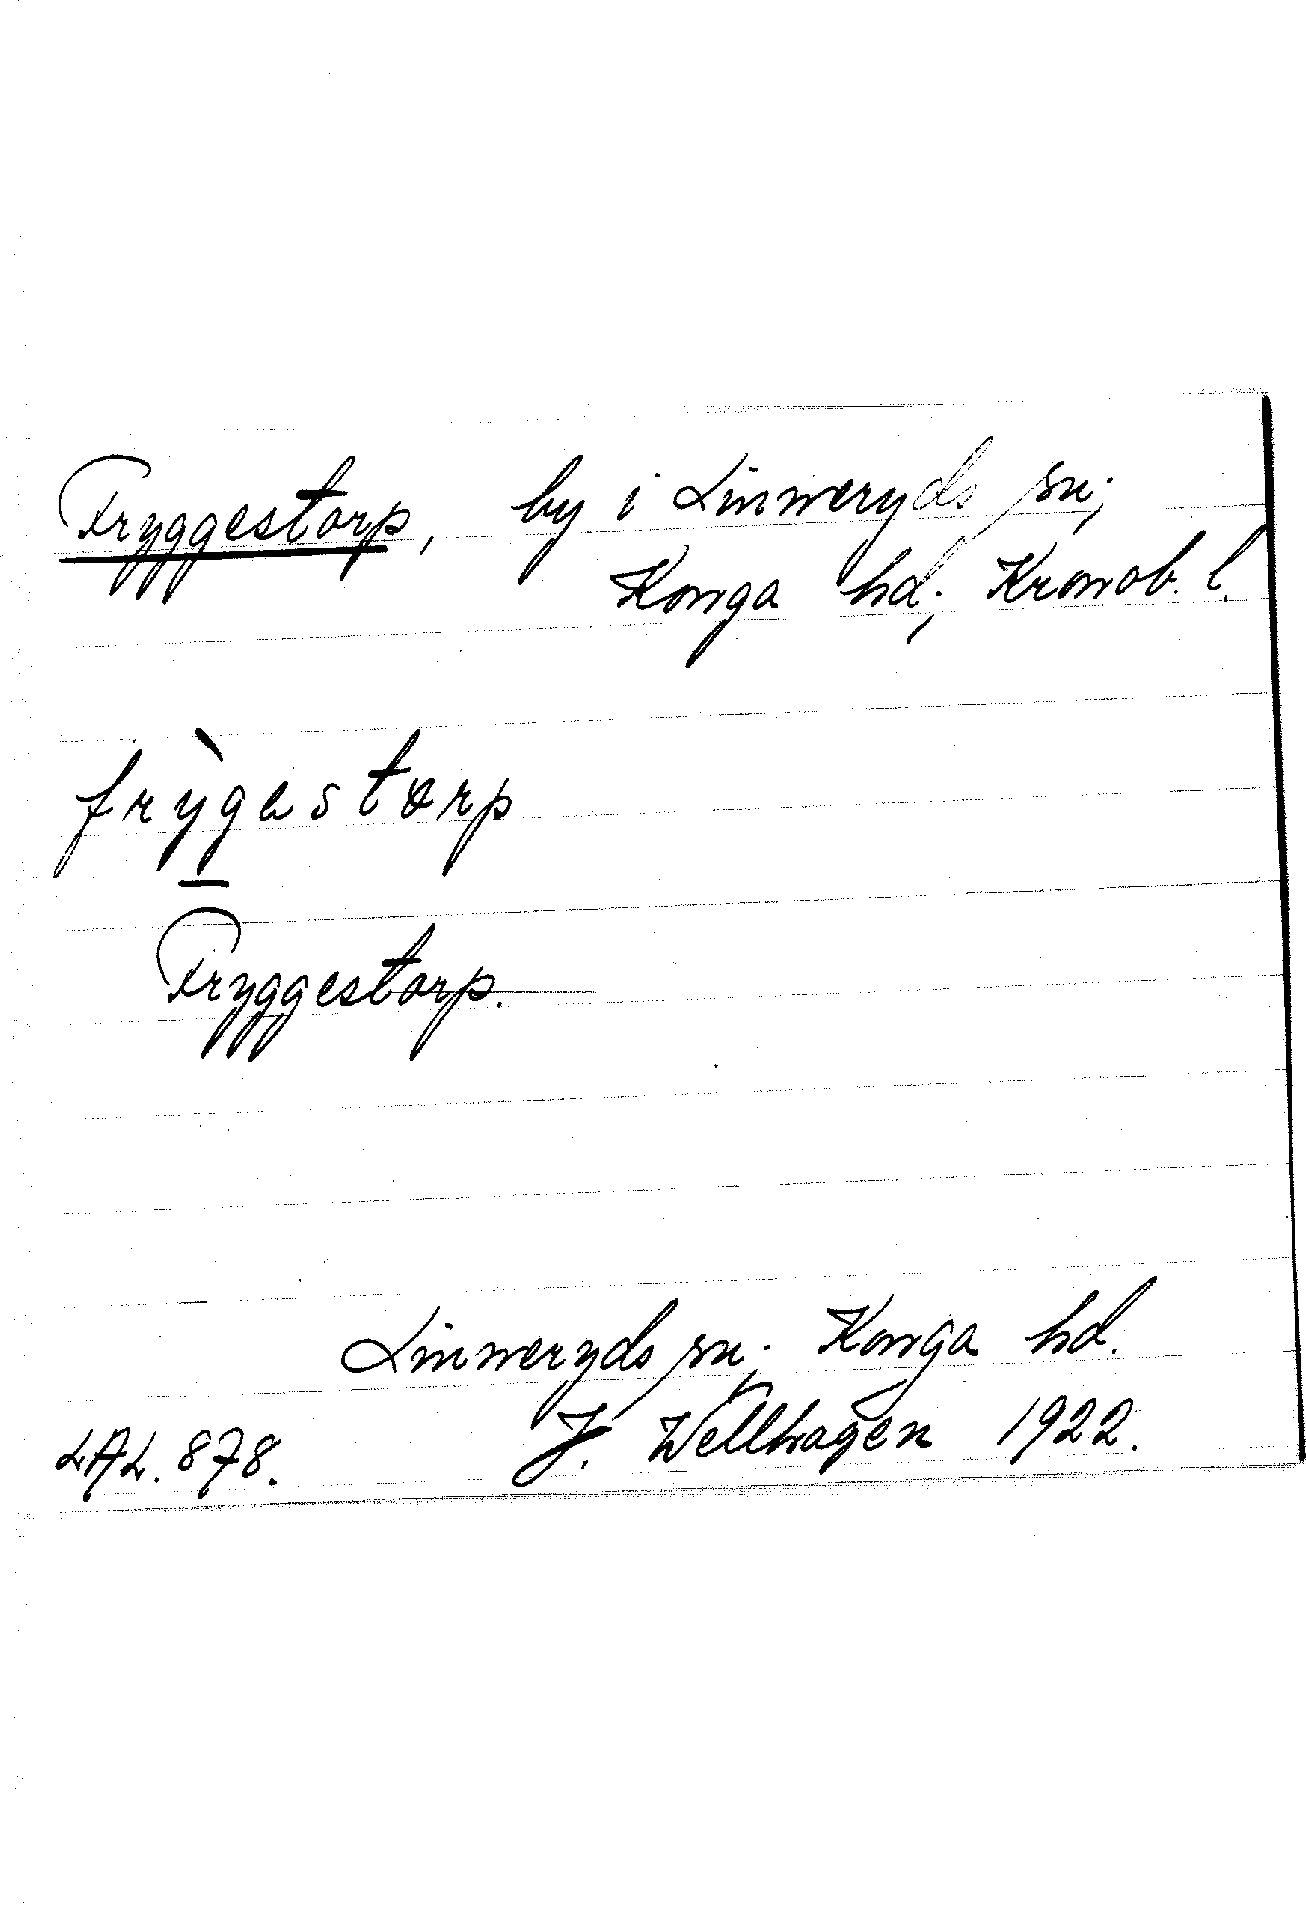 Fryggestorp, by i Linneryds sn;
Konga hd; Kronob. l.
frỳgestorp
Fryggestorp.
Linneryds sn; Konga hd.
LAL. 878. J. Wellhagen 1922.